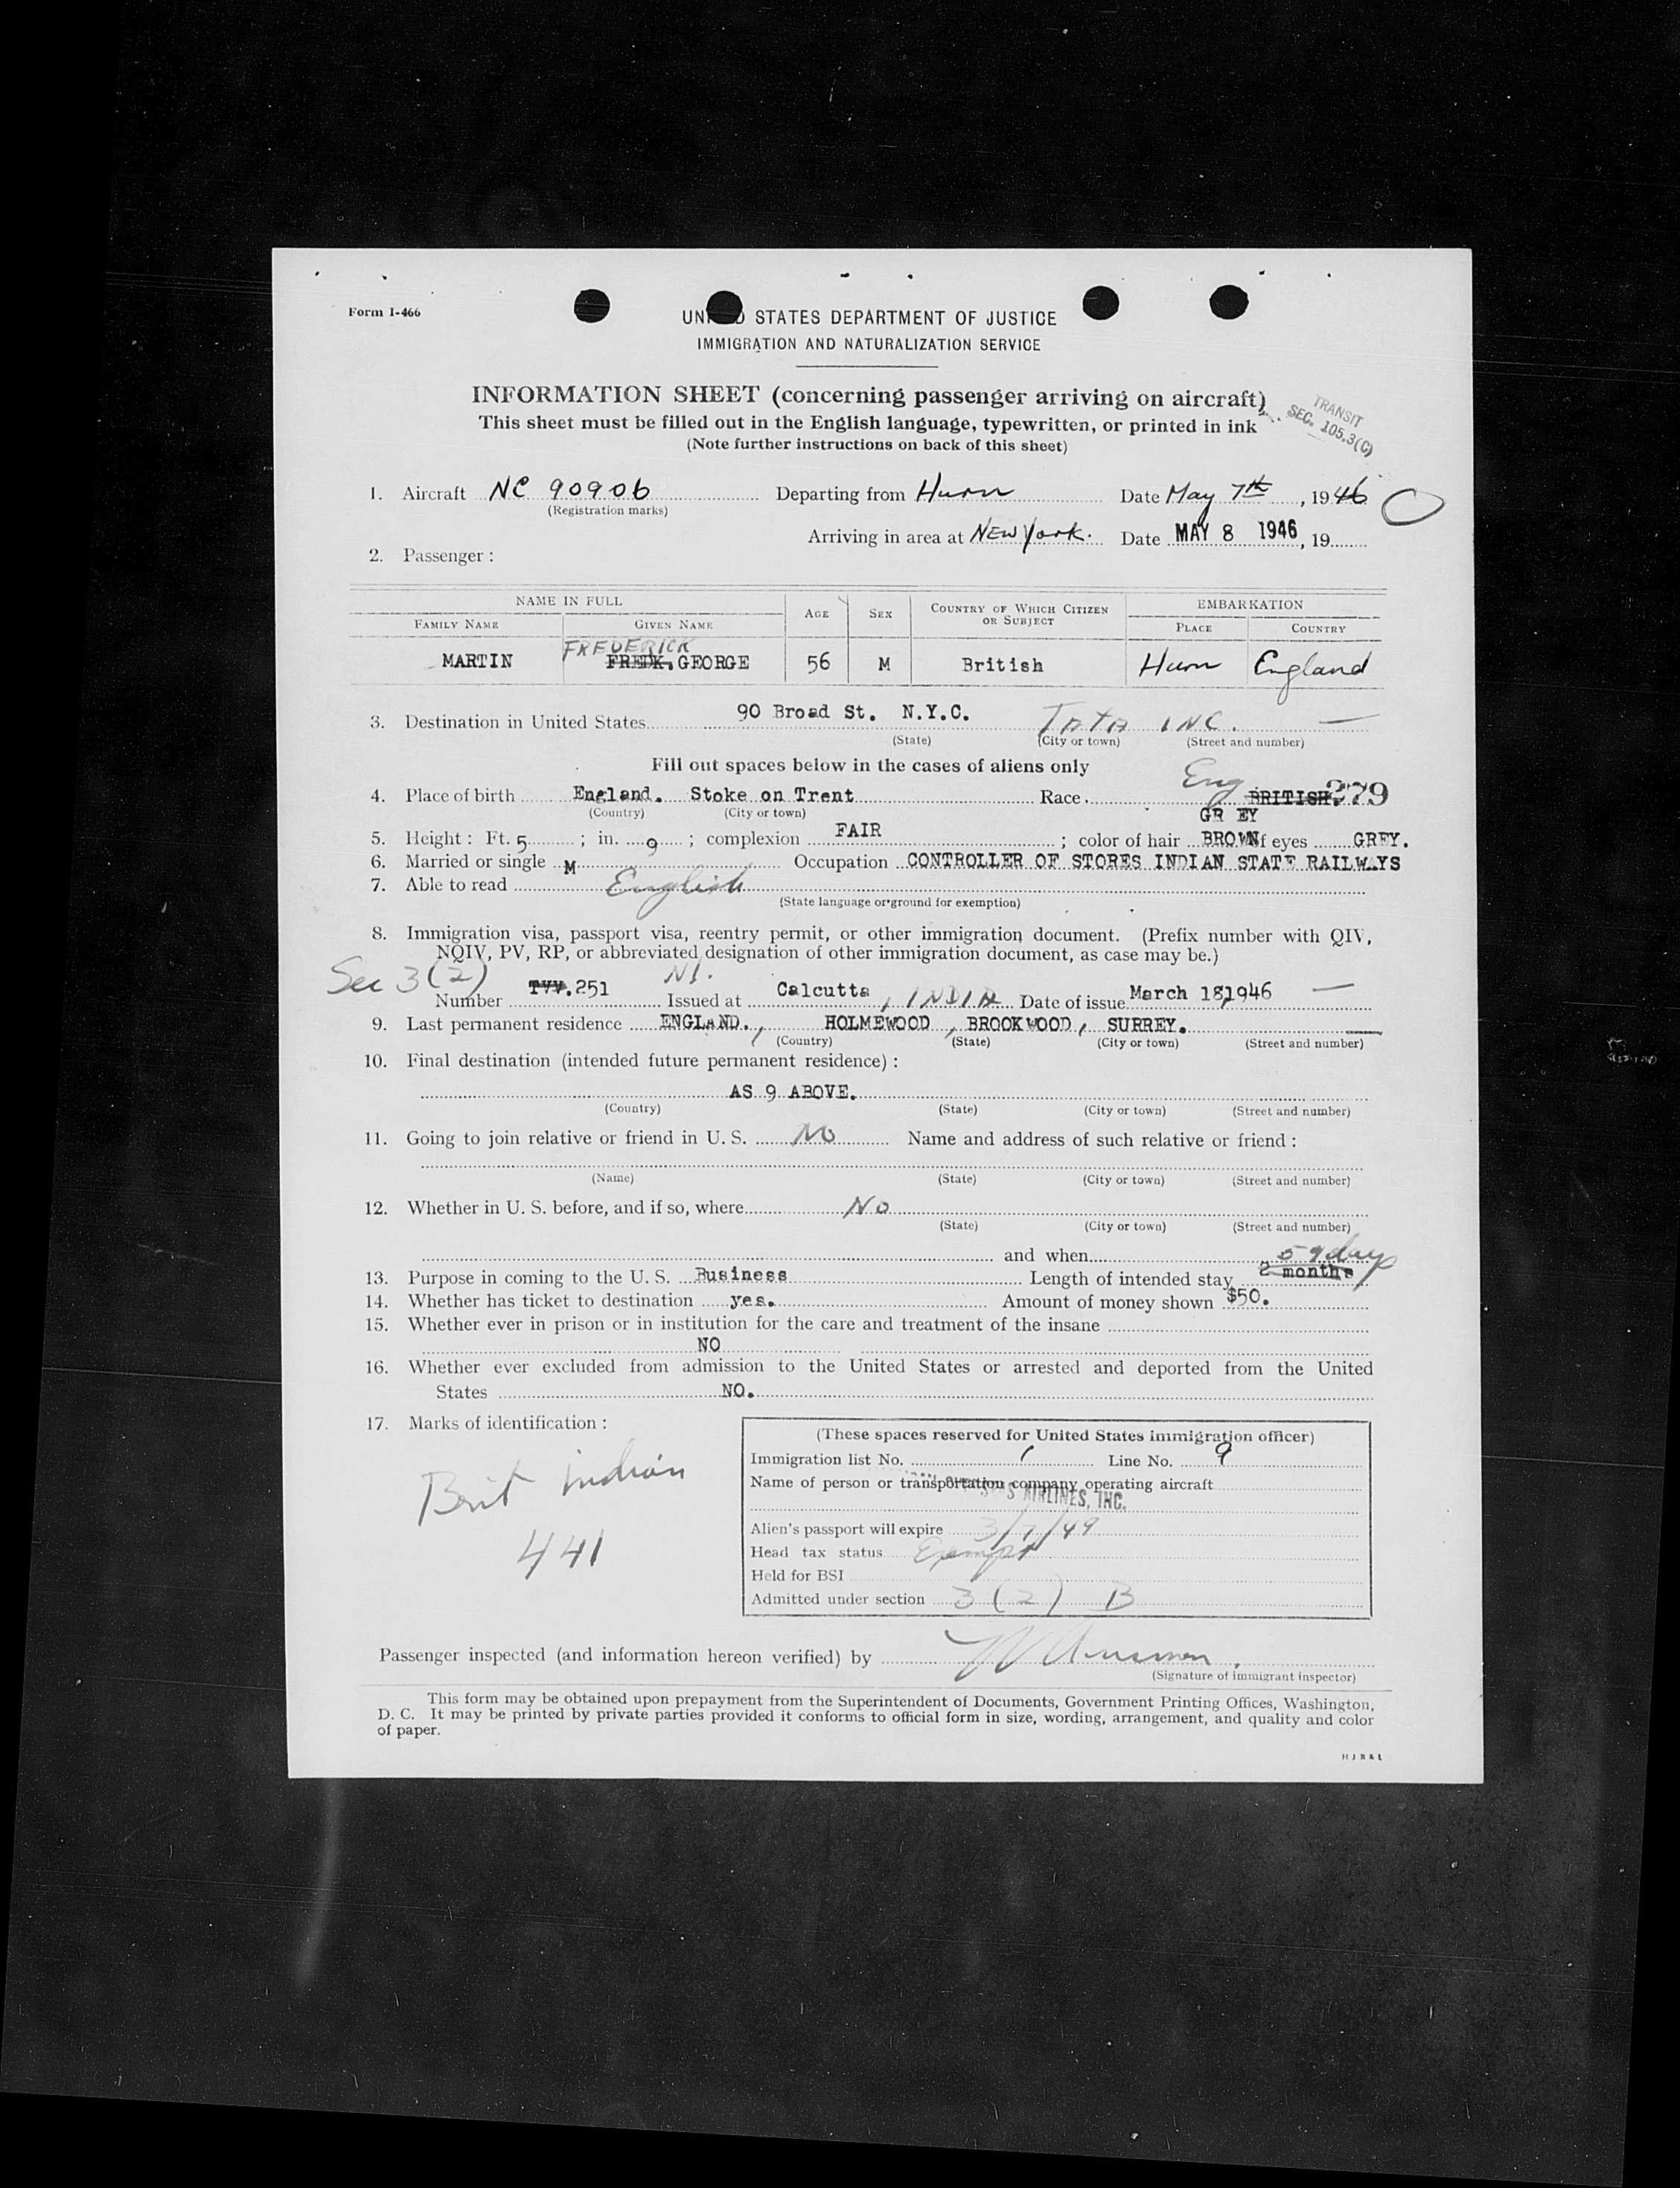 Form I-466
UNITED STATES DEPARTMENT OF JUSTICE
IMMIGRATION AND NATURALIZATION SERVICE
INFORMATION SHEET (concerning passenger arriving on aircraft)
This sheet must be filled out in the English language, typewritten, or printed in ink
(Note further instructions on back of this sheet)
TRANSIT
SEC. 105.3(C)
1. Aircraft NC 90906 Departing from Hurn Date May 7th, 1946
(Registration marks)
Arriving in area at New York. Date MAY 8 1946, 19
2. Passenger :
NAME IN FULL AGE SEX COUNTRY OF WHICH CITIZEN OR SUBJECT EMBARKATION
FAMILY NAME GIVEN NAME PLACE COUNTRY
FREDERICK
MARTIN FREDK. GEORGE 56 M British Hurn England
3. Destination in United States 90 Broad St. N.Y.C. TATA INC.
(State) (City or town) (Street and number)
Fill out spaces below in the cases of aliens only
4. Place of birth England. Stoke on Trent Race Eng BRITISH. 279
(Country) (City or town)
GREY
5. Height : Ft. 5 ; in. 9 ; complexion FAIR ; color of hair BROWN of eyes GREY.
6. Married or single M Occupation CONTROLLER OF STORES INDIAN STATE RAILWAYS
7. Able to read English
(State language or ground for exemption)
8. Immigration visa, passport visa, reentry permit, or other immigration document. (Prefix number with QIV,
NQIV, PV, RP, or abbreviated designation of other immigration document, as case may be.)
Sec 3(2)
Number TVV. 251 NI. Issued at Calcutta, INDIA Date of issue March 18, 1946
9. Last permanent residence ENGLAND., HOLMEWOOD, BROOKWOOD, SURREY.
(Country) (State) (City or town) (Street and number)
10. Final destination (intended future permanent residence) :
AS 9 ABOVE.
(Country) (State) (City or town) (Street and number)
11. Going to join relative or friend in U. S. No Name and address of such relative or friend :
(Name) (State) (City or town) (Street and number)
12. Whether in U. S. before, and if so, where No
(State) (City or town) (Street and number)
and when
59 days
13. Purpose in coming to the U. S. Business Length of intended stay 2 months
14. Whether has ticket to destination yes. Amount of money shown $50.
15. Whether ever in prison or in institution for the care and treatment of the insane
NO
16. Whether ever excluded from admission to the United States or arrested and deported from the United
States NO.
17. Marks of identification :
Brit Indian
441
(These spaces reserved for United States immigration officer)
Immigration list No. 1 Line No. 9
Name of person or transportation company operating aircraft
AIRLINES, INC.
Alien's passport will expire 3/7/49
Head tax status Exempt
Held for BSI
Admitted under section 3(2) B
Passenger inspected (and information hereon verified) by
(Signature of immigrant inspector)
This form may be obtained upon prepayment from the Superintendent of Documents, Government Printing Offices, Washington,
D. C. It may be printed by private parties provided it conforms to official form in size, wording, arrangement, and quality and color
of paper.
H J R & L